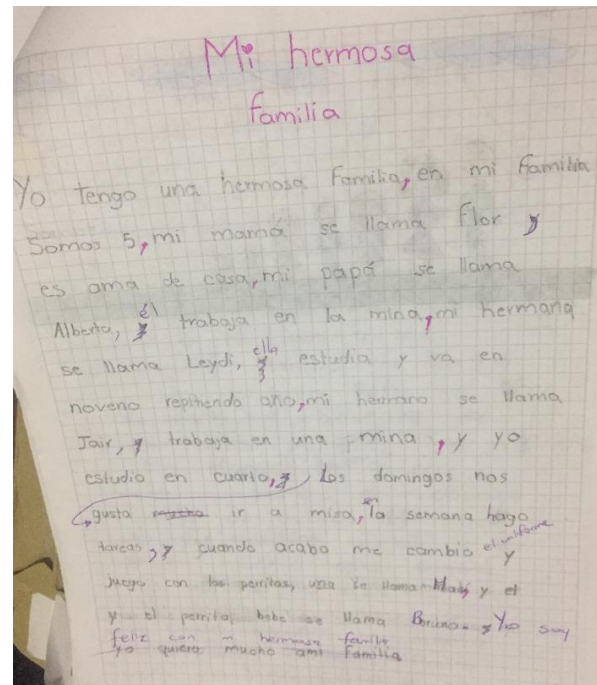 Mi hermosa
familia
Yo Tengo una hermosa Familia, en mi familia
Somos 5, mi mamá se llama Flor y
es ama de casa, mi papá se llama
Alberto, él trabaja en la mina, mi hermana
se llama Leydi, ella estudia y va en
noveno repitiendo año, mi hermano se llama
Jair, y trabaja en una mina, y yo
estudio en cuarto, y Los domingos nos
gusta mucho ir a misa, en la semana hago
tareas, y cuando acabo me cambio el uniforme y
Juego con las perritas, una se llama y el
y el perrito bebe se llama Yo soy
feliz con mi hermosa familia
yo quiero mucho ami Familia